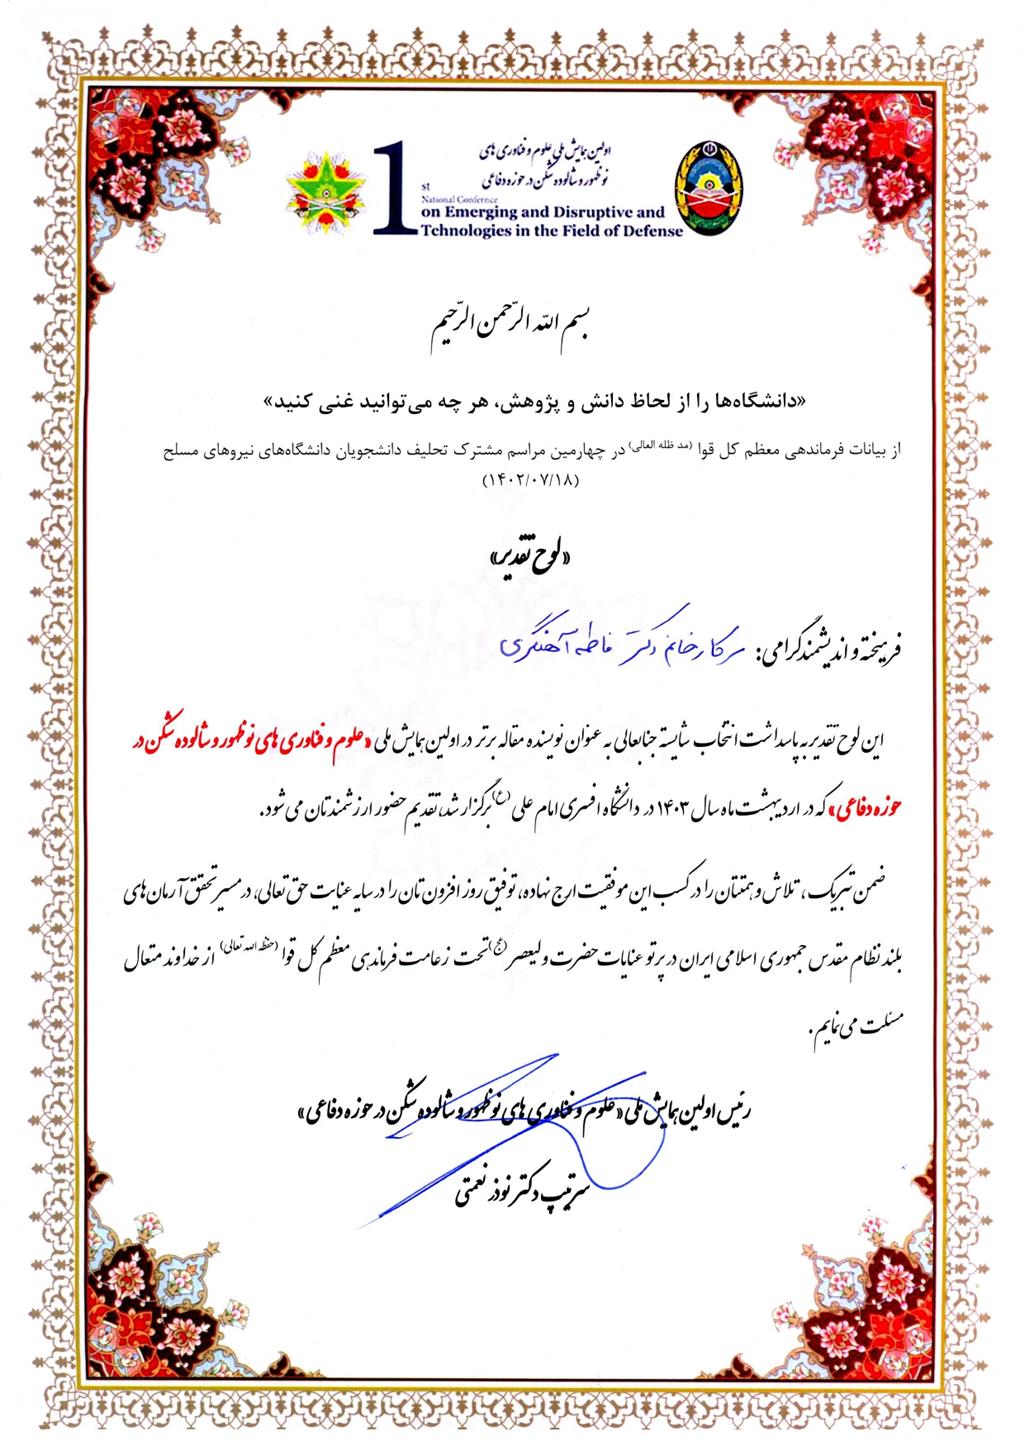 اولین همایش ملی علوم و فناوری های
نوظهور و شالوده شکن در حوزه دفاعی
1st
National Confernce
on Emerging and Disruptive and
Tchnologies in the Field of Defense
بسم الله الرّحمن الرّحیم
«دانشگاه‌ها را از لحاظ دانش و پژوهش، هر چه می‌توانید غنی کنید»
از بیانات فرماندهی معظم کل قوا (مد ظله العالی) در چهارمین مراسم مشترک تحلیف دانشجویان دانشگاه‌های نیروهای مسلح
(۱۴۰۲/۰۷/۱۸)
«لوح تقدیر»
فرهیخته و اندیشمند گرامی: سرکار خانم دکتر فاطمه آهنگری
این لوح تقدیر به پاسداشت انتخاب شایسته جنابعالی به عنوان نویسنده مقاله برتر در اولین همایش ملی «علوم و فناوری های نوظهور و شالوده شکن در
حوزه دفاعی» که در اردیبهشت ماه سال ۱۴۰۳ در دانشگاه افسری امام علی (ع) برگزار شد، تقدیم حضور ارزشمندتان می‌شود.
ضمن تبریک، تلاش و همتتان را در کسب این موفقیت ارج نهاده، توفیق روز افزون‌تان را در سایه عنایت حق تعالی، در مسیر تحقق آرمان های
بلند نظام مقدس جمهوری اسلامی ایران در پرتو عنایات حضرت ولیعصر (عج) تحت زعامت فرماندهی معظم کل قوا (حفظه الله تعالی) از خداوند متعال
مسئلت می‌نمایم.
رئیس اولین همایش ملی «علوم و فناوری های نوظهور و شالوده شکن در حوزه دفاعی»
سرتیپ دکتر نوذر نعمتی